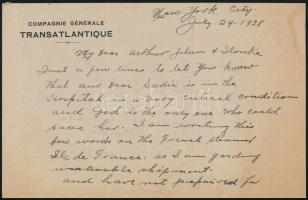 COMPAGNIE GÉNÉRALE
TRANSATLANTIQUE
New York City.
July 29-1928
My Dear Arthur Jolan & Ilonka
Just a few lines to let you know
that our dear Sadie is in the
Hospital in a very critical condition
and God is the only one who could
save her. I am writing this
few words on the French steamer
Ile de France. as I am
valuable shipment.
and have not prepaired for